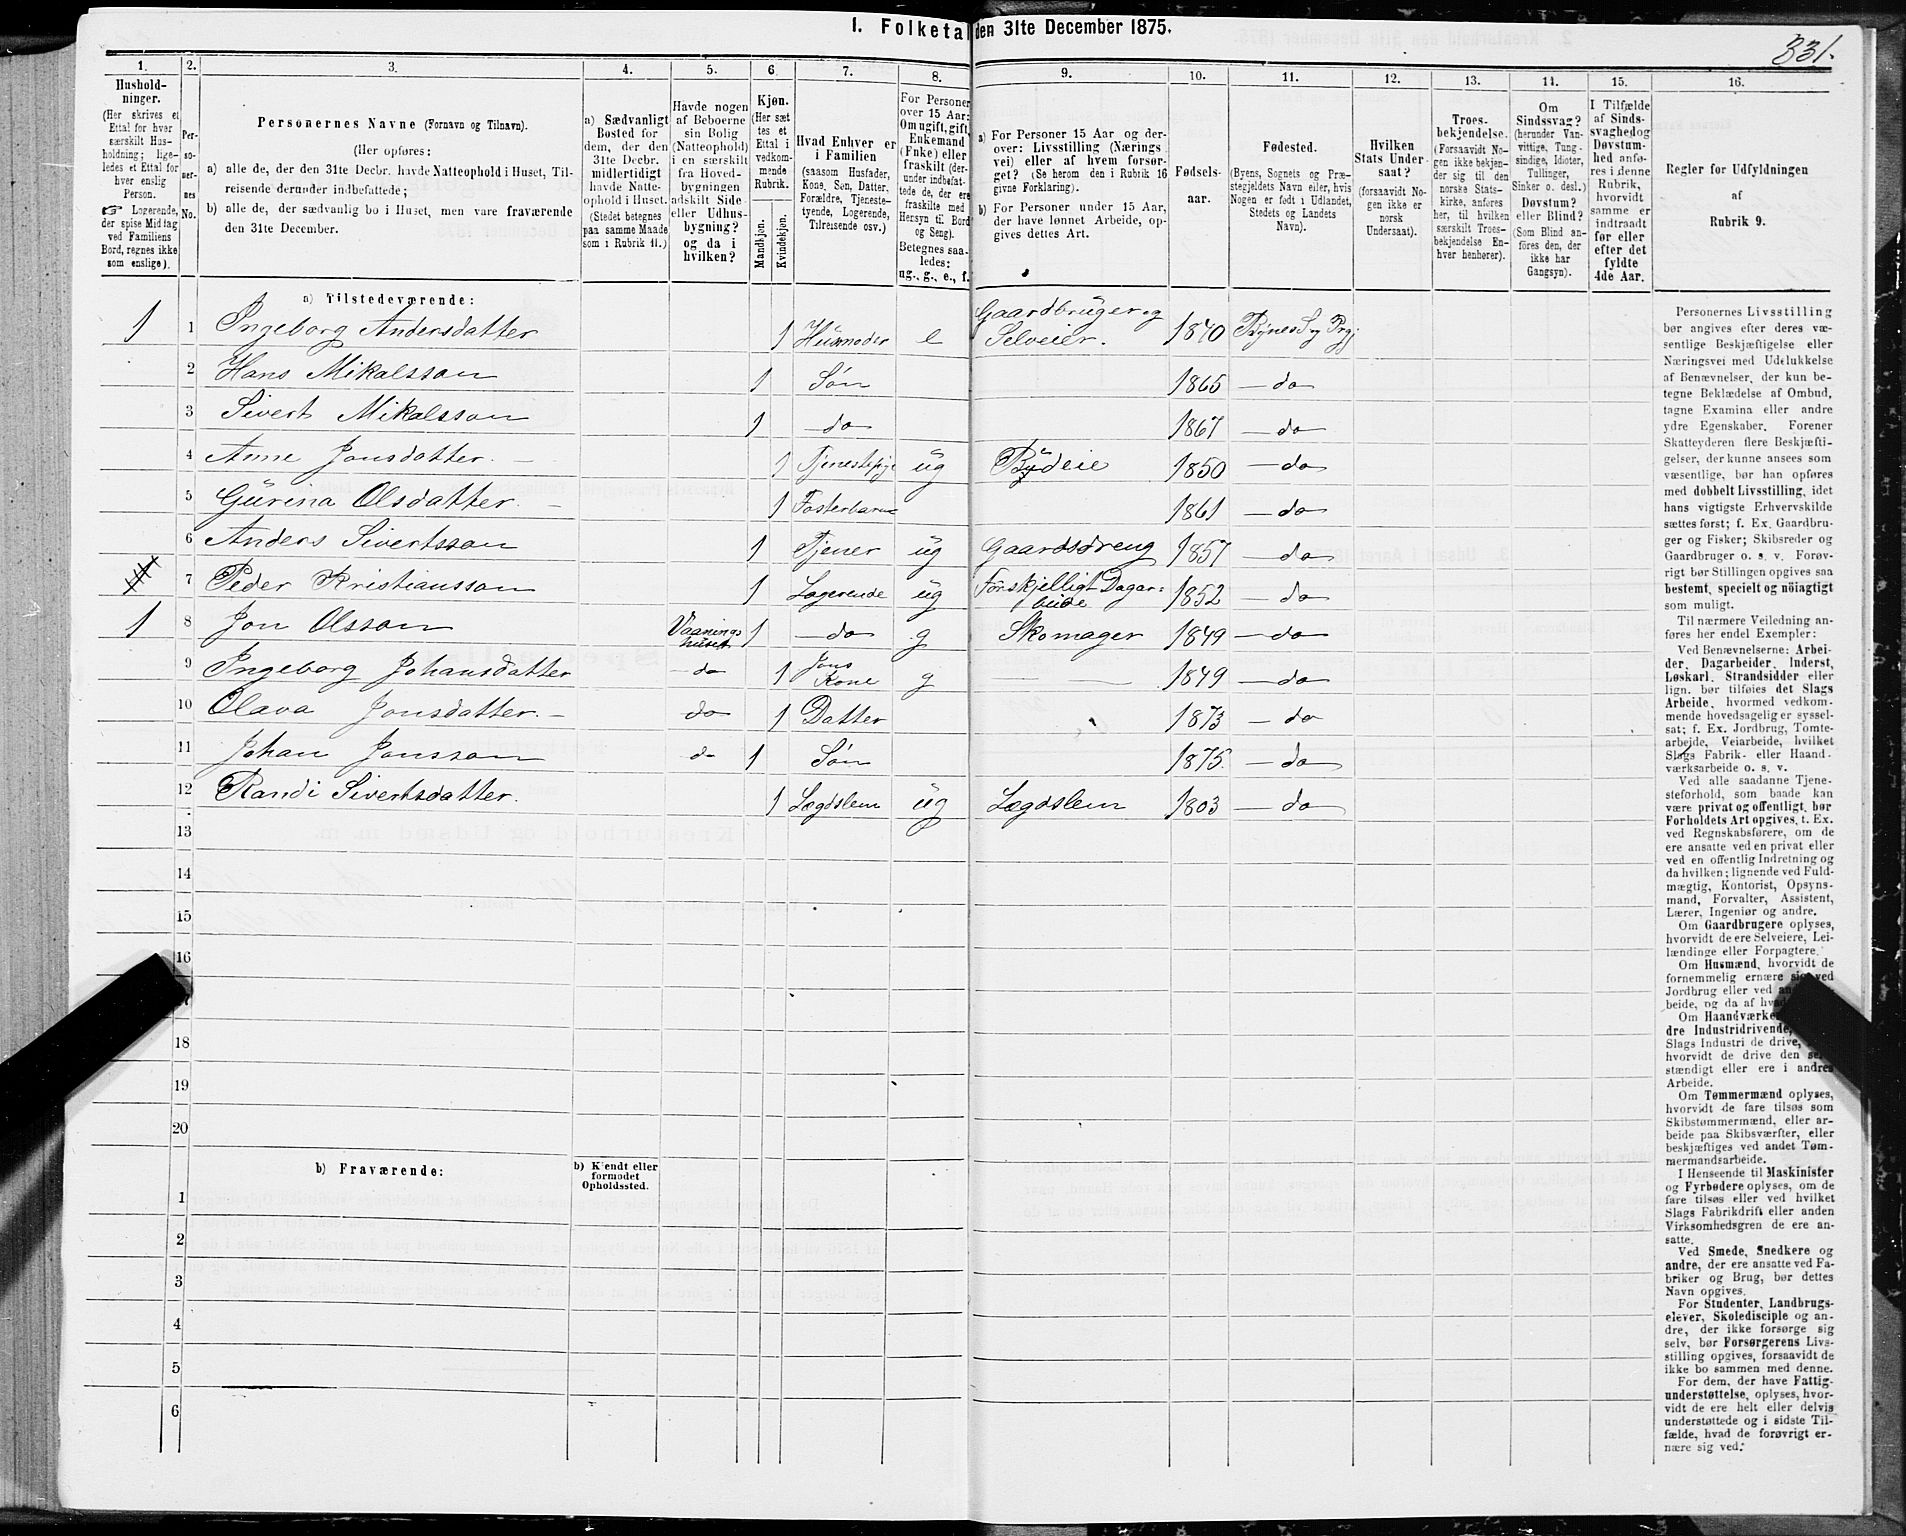 I. Folketal den 31te December 1875.
331.
1.
Husholdninger.
(Her skrives et
Ettal for hver
særskilt Husholdning; ligeledes et Ettal for
hver enslig
Person.
☞ Logerende,
der spise Middag
ved Familiens
Bord, regnes ikke
som enslige).
2.
Personernes
No.
3.
Personernes Navne (Fornavn og Tilnavn).
(Her opføres:
a) alle de, der den 31te Decbr. havde Natteophold i Huset, Tilreisende derunder indbefattede;
b) alle de, der sædvanlig bo i Huset, men vare fraværende
den 31te December.
4.
a) Sædvanligt
Bosted for
dem, der den
31te Decbr.
midlertidigt
havde Natteophold i Huset.
(Stedet betegnes
paa samme Maade
som i Rubrik 11.)
5.
Havde nogen
af Beboerne
sin Bolig
(Natteophold)
i en særskilt
fra Hovedbygningen
adskilt Side-
eller Udhusbygning?
og da i
hvilken?
6.
Kjøn.
(Her sættes et
Ettal i
vedkommende
Rubrik.
Mandkjøn.
Kvindekjøn.
7.
Hvad Enhver er
i Familien
(saasom Husfader,
Kone, Søn, Datter,
Forældre, Tjenestetyende, Logerende,
Tilreisende osv.)
8.
For Personer
over 15 Aar:
Om ugift, gift,
Enkemand
(Enke) eller
fraskilt (derunder indbefattede de, der ere
fraskilte med
Hensyn til Bord
og Seng).
Betegnes saaledes:
ug., g., e., f.
9.
a) For Personer 15 Aar og derover: Livsstilling (Næringsvei) eller af hvem forsørget? (Se herom den i Rubrik 16
givne Forklaring).
b) For Personer under 15 Aar,
der have lønnet Arbeide, opgives dettes Art.
10.
Fødselsaar.
11.
Fødested.
(Byens, Sognets og Præstegjeldets Navn eller, hvis
Nogen er født i Udlandet,
Stedets og Landets
Navn).
12.
Hvilken
Stats Undersaat?
(forsaavidt Nogen ikke er
norsk
Undersaat).
13.
Troesbekjendelse.
(Forsaavidt Nogen ikke bekjender sig til den
norske Statskirke, anføres
her, til hvilken
særskilt Troesbekjendelse Enhver henhører).
14.
Om
Sindssvag?
(herunder Vanvittige, Tungsindige, Idioter,
Tullinger,
Sinker o. desl.)
Døvstum?
eller Blind?
(Som Blind anføres den, der
ikke har
Gangsyn).
15.
I Tilfælde
af Sindssvaghed og
Døvstumhed anføres i denne
Rubrik,
hvorvidt
samme er
indtraadt
før eller
efter det
fyldte
4de Aar.
16.
Regler for Udfyldningen
af
Rubrik 9.
a) Tilstedeværende:
1 1 Ingeborg Andersdatter 1 Husmoder e Gaardbruger og Selveier. 1840 Bynes S. og Prg:
2 Hans Mikalsson 1 Søn 1865 — do
3 Sivert Mikalsson 1 — do 1867 — do
4 Anne Jonsdatter. — 1 Tjenestepige ug Budeie 1850 — do
5 Gurina Olsdatter. — 1 Fosterbarn 1861 — do
6 Anders Sivertsson 1 Tjener ug Gaardsdreng 1857 — do
7 Peder Kristiansson 1 Logerende ug Forskjelligt Dagarbeide 1852 — do
1 8 Jon Olsson Vaaningshuset 1 — do g Skomager 1849 — do
9 Ingeborg Johansdatter — do 1 Jons Kone g — — 1849 — do
10 Olava Jonsdatter. — do 1 Datter 1873 — do
11 Johan Jonsson do 1 Søn 1875. — do
12 Randi Sivertsdatter. 1 Lægdslem ug Lægdslem 1803 — do
13
14
15
16
18
19
20
b) Fraværende:
b) Kjendt eller
formodet
Opholdssted.
1
2
3
4
5
6
Personernes Livsstilling
bør angives efter deres væsentlige Beskjæftigelse eller
Næringsvei med Udelukkelse
af Benævnelser, der kun betegne Beklædelse af Ombud,
tagne Examina eller andre
ydre Egenskaber. Forener
Skatteyderen flere Beskjæftigelser, der kunne ansees som
væsentlige, bør han opføres
med dobbelt Livsstilling, idet
hans vigtigste Erhvervskilde
sættes først; f. Ex. Gaardbruger og Fisker; Skibsreder og
Gaardbruger o. s. v. Forøvrigt bør Stillingen opgives saa
bestemt, specielt og nöiagtigt
som muligt.
Til nærmere Veiledning anføres her endel Exempler:
Ved Benævnelserne: Arbeider, Dagarbeider, Inderst,
Løskarl, Strandsidder eller
lign. bør tilføies det Slags
Arbeide, hvormed vedkommende hovedsagelig er sysselsat; f. Ex. Jordbrug, Tomtearbejde, Veiarbeide, hvilket
Slags Fabrik- eller Haandværksarbeide o. s. v.
Ved alle saadanne Tjenesteforhold, som baade kan
være privat og offentligt, bør
Forholdets Art opgives, t. Ex.
ved Regnskabsførere, om de
ere ansatte ved en privat eller
ved en offentlig Indretning og
da hvilken; lignende ved Fuldmægtig, Kontorist, Opsynsmand, Forvalter, Assistent,
Lærer, Ingeniør og andre.
Om Gaardbrugere oplyses,
hvorvidt de ere Selveiere, Leilændinge eller Forpagtere.
Om Husmænd, hvorvidt de
fornemmelig ernære sig ved
Jordbrug eller ved
Om
dre Industridrivende,
Slags Industri de drive,
hvorvidt de drive den
stændigt eller ere i andres
Arbeide.
Om Tømmermænd oplyses,
hvorvidt de fare tilsøs som
Skibstømmermænd, eller arbeide paa Skibsværfter, eller
beskjæftiges ved andet Tømmermandsarbeide.
I Henseende til Maskinister
og Fyrbødere oplyses, om de
fare tilsøs eller ved hvilket
Slags Fabrikdrift eller anden
Virksomhedsgren de ere ansatte.
Ved Smede, Snedkere og
andre, der ere ansatte ved Fabriker og Brug, bør dettes
Navn opgives.
For Studenter, Landbrugselever, Skoledisciple og andre, der ikke forsørge sig
selv, bør Forsørgerens Livsstilling opgives, forsaavidt de
ikke bo sammen med denne.
For dem, der have Fattigunderstøttelse, oplyses, hvorvidt de ere helt eller delvis
understøttede og i sidste Tilfælde, hvad de forøvrigt ernære sig ved.